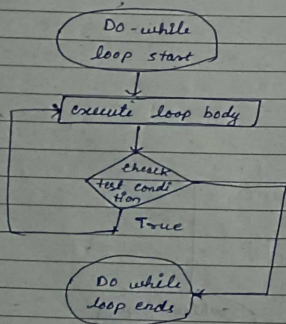 Do-while
loop start
execute loop body
check
test condi
tion
True
Do while
loop ends